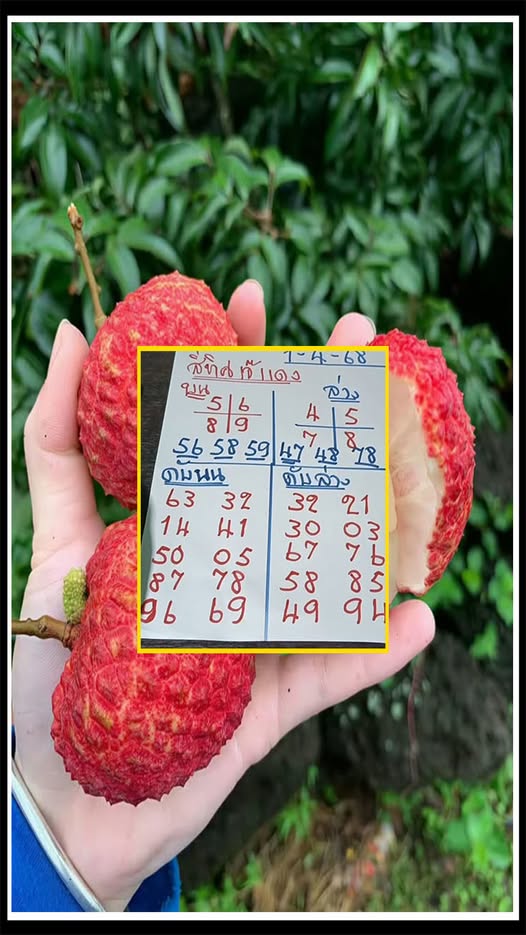 1-4-68
บน
ล่าง
5 6
8 9
4 5
7 8
56 58 59
47 48 78
ดับบน
ดับล่าง
63 32
14 41
50 05
87 78
96 69
32 21
30 03
67 76
58 85
49 94